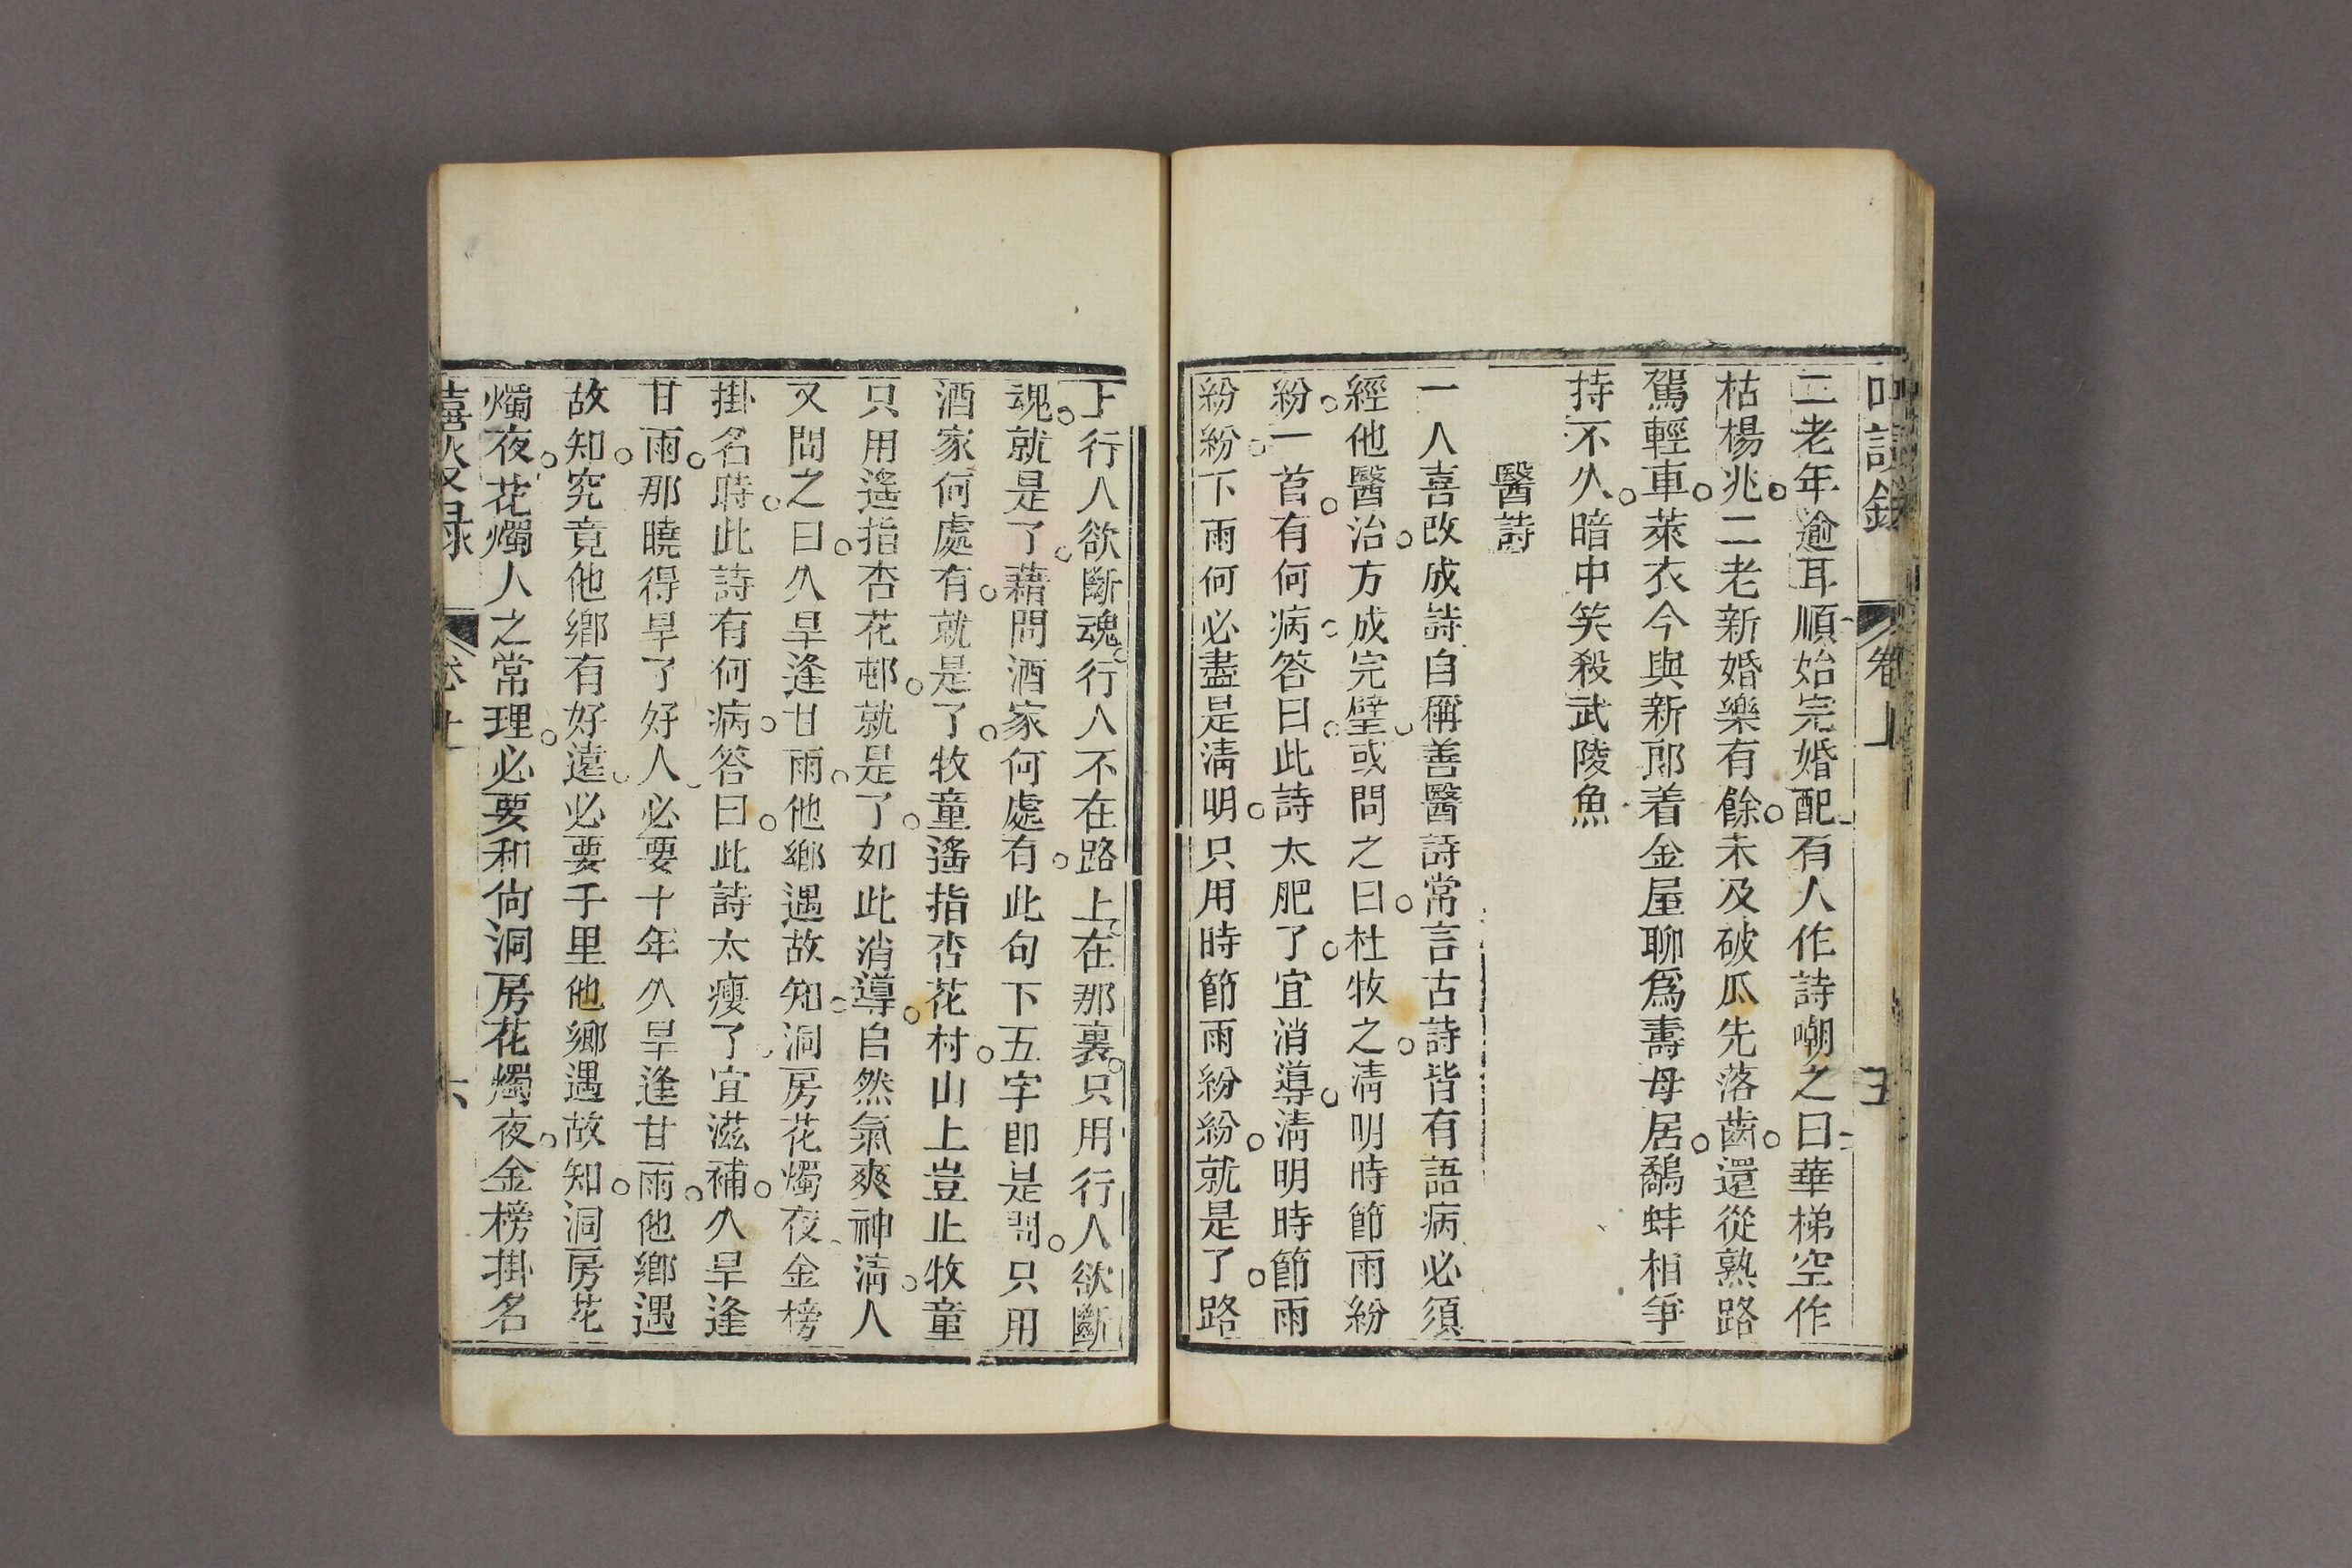 卷上
二老年逾耳順始完婚配有人作詩嘲之曰華梯空作
枯楊兆二老新婚樂有餘未及破瓜先落齒還從熟路
駕輕車萊衣今與新郎着金屋聊爲壽母居鷸蚌相爭
持不久暗中笑殺武陵魚
醫詩
一人喜改成詩自稱善醫詩常言古詩皆有語病必須
經他醫治方成完璧或問之曰杜牧之淸明時節雨紛
紛一首有何病答曰此詩太肥了宜消導淸明時節雨
紛紛下雨何必盡是淸明只用時節雨紛紛就是了路
上行人欲斷魂行人不在路上在那裏只用行人欲斷
魂就是了藉問酒家何處有此句下五字卽是問只用
酒家何處有就是了牧童遙指杏花村山上豈止牧童
只用遙指杏花邨就是了如此消導自然氣爽神淸人
又問之曰久旱逢甘雨他鄕遇故知洞房花燭夜金榜
掛名時此詩有何病答曰此詩太瘦了宜滋補久旱逢
甘雨那曉得旱了好久必要十年久旱逢甘雨他鄕遇
故知究竟他鄕有好遠必要千里他鄕遇故知洞房花
燭夜花燭人之常理必要和尙洞房花燭夜金榜掛名
六